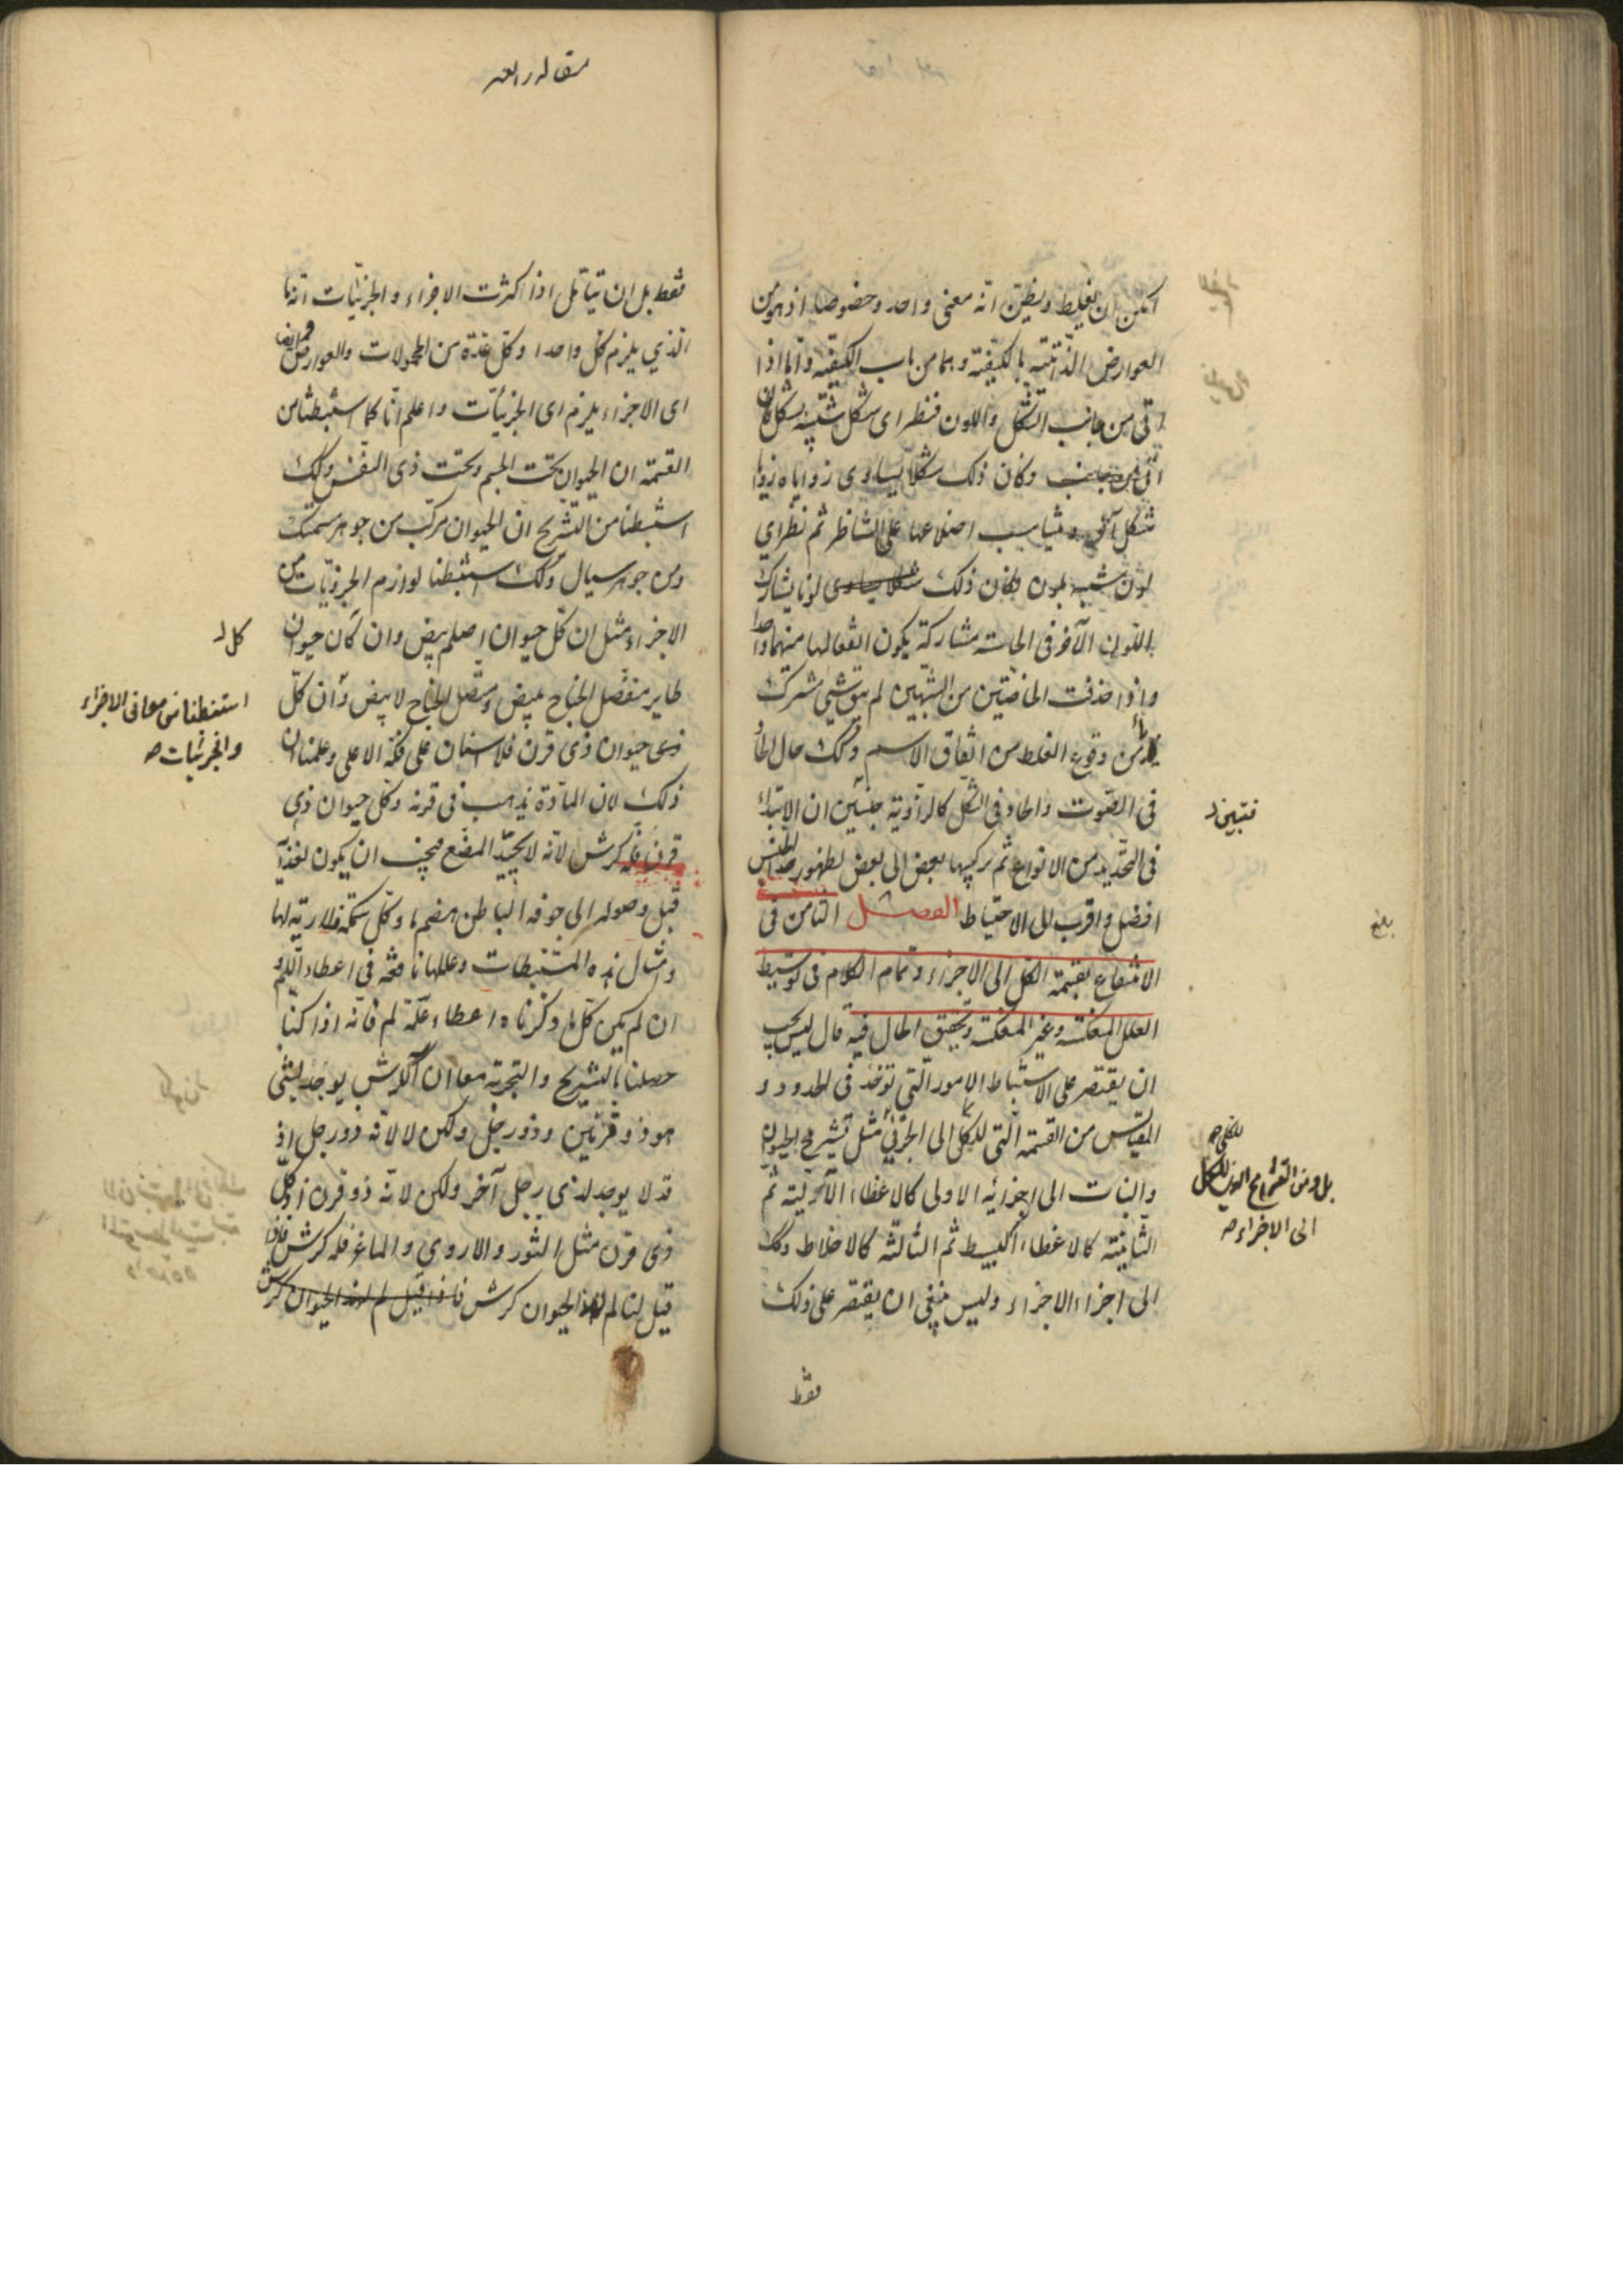 امكن ان يغلط ويظن انه معنى واحد وخصوصا اذ هو من
العوارض الذاتية بالكيفية وهما من باب الكيفية واما اذا
اتى من جانب الشكل واللون فنظر اى شكل شبيه بشكل فان
وكان ذلك شكلا يساوى زواياه زوايا
شكل آخر ويناسب اضلاعها على التناظر ثم نظر اى
لون شبيه بلون فكان ذلك لونا يشارك
اللون الآخر فى الحاسة مشاركة يكون انفعالها منهما واحدا
واذا حذفت الخاصتين من الشبهين لم يبق شيئ مشترك
يأمن وقوع الغلط من اتفاق الاسم وكذلك حال الحاد
فى الصوت والحاد فى الشكل كالزاوية فتبين ان الابتداء
فى التحديد من الانواع ثم تركيبها بعض الى بعض لظهور حد الجنس
افضل واقرب الى الاحتياط الفصل الثامن فى
الانتفاع بقسمة الكل الى الاجزاء وتمام الكلام فى توسيط
العلل المنعكسة وغير المنعكسة وتحقيق الحال فيه قال ليس يجب
ان يقتصر على الاستنباط الامور التى تؤخذ فى الحدود و
المقاييس من القسمة التى للكلى الى الجزئى مثل تشريح الحيوان
والنبات الى اجزائه الاولى كالاعضاء الآلية ثم
الثانية كالاعضاء البسيط ثم الثالثة كالاخلاط وكذلك
الى اجزاء الاجزاء وليس ينبغى ان يقتصر على ذلك
فقط
فتبين
بلغ
للكلى صح
بل ومن التشريح الذى للكل
الى الاجزاء صح
مقاله رابعه
فقط بل ان يتأمل اذا كثرت الاجزاء والجزئيات انها
الذى يلزم كل واحد وكل عدة من المحمولات والعوارض
اى الاجزاء يلزم اى الجزئيات واعلم انا كما استنبطنا من
القسمة ان الحيوان تحت الجسم وتحت ذى النفس وكذلك
استنبطنا من التشريح ان الحيوان مركب من جوهر سمتك
ومن جوهر سيال وكذلك استنبطنا لوازم الجزويات من
الاجزاء مثل ان كل حيوان اصلم يبيض وان كان حيوان
طاير منفصل الجناح يبيض ومتصل الجناح لا يبيض وان كل
ذى حيوان ذى قرن فلا اسنان على فكه الاعلى وعلمنا ان
ذلك لان المادة يذهب فى قرنه وكل حيوان ذى
قرن فله كرش لانه لا يجيد المضغ فيجب ان يكون لغذائه
قبل وصوله الى جوفه الباطن هضم ما وكل سمكة فلا رية لها
ومثال هذه المستنبطات وعللها نافعة فى اعطاء اللم و
ان لم يكن كل ما ذكرناه اعطاء علة لم فانه اذا كنا
حصلنا بالتشريح والتجربة معا ان الكرش يوجد لشئ
هو ذو قرنين وذو رجل ولكن لا لانه ذو رجل اذ
قد لا يوجد لذى رجل آخر ولكن لانه ذو قرن اذ كل
ذى قرن مثل الثور والاروى والماعز فله كرش فاذا
قيل لنا لم لهذا الحيوان كرش فاذا قيل لم لهذا الحيوان كرش
كل
استنبطنا من معانى الاجزاء
والجزئيات صح